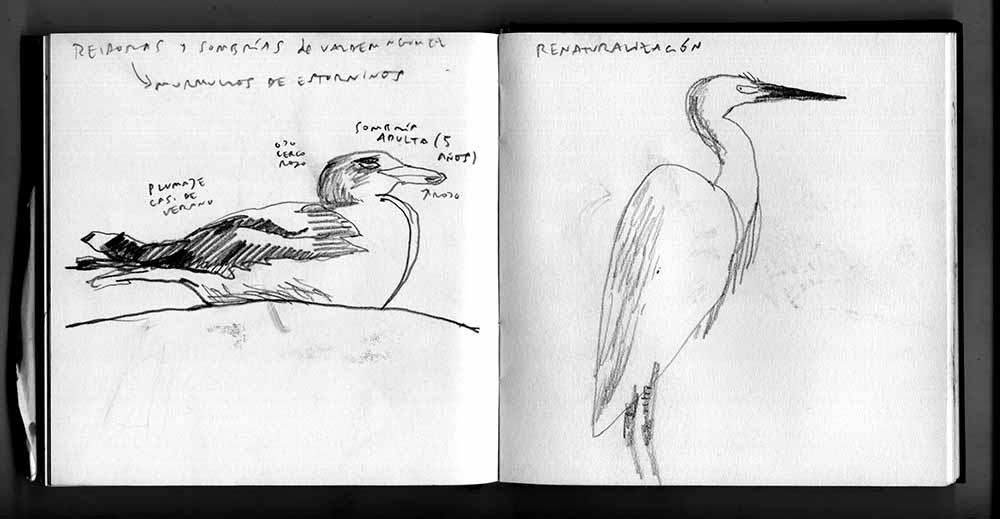 REIDORAS Y SOMBRÍAS de VALDEMINGOMEZ
MURMULLOS DE ESTORNINOS
SOMBRÍA
ADULTA (5
AÑOS)
OJO
CERCO
ROJO
ROJO
PLUMAJE
CAS. DE
VERANO
RENATURALIZACIÓN